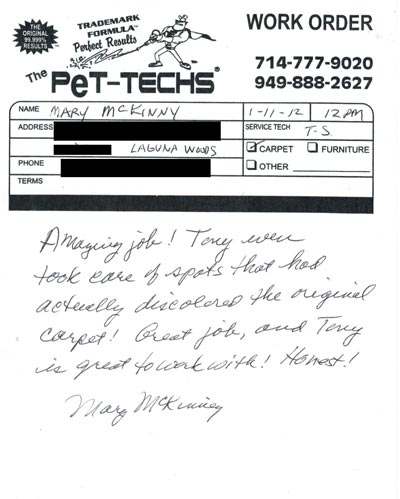 THE
ORIGINAL
99.999%
RESULTS
TRADEMARK
FORMULA™
Perfect Results
The PeT-TECHS®
WORK ORDER
714-777-9020
949-888-2627
NAME MARY McKINNY 1-11-12 12PM
ADDRESS SERVICE TECH T-S.
LAGUNA WOODS ☑ CARPET ☐ FURNITURE
PHONE ☐ OTHER
TERMS
Amazing job! Tony even
took care of spots that had
actually discolored the original
carpet! Great job, and Tony
is great to work with! Honest!
Mary McKinney